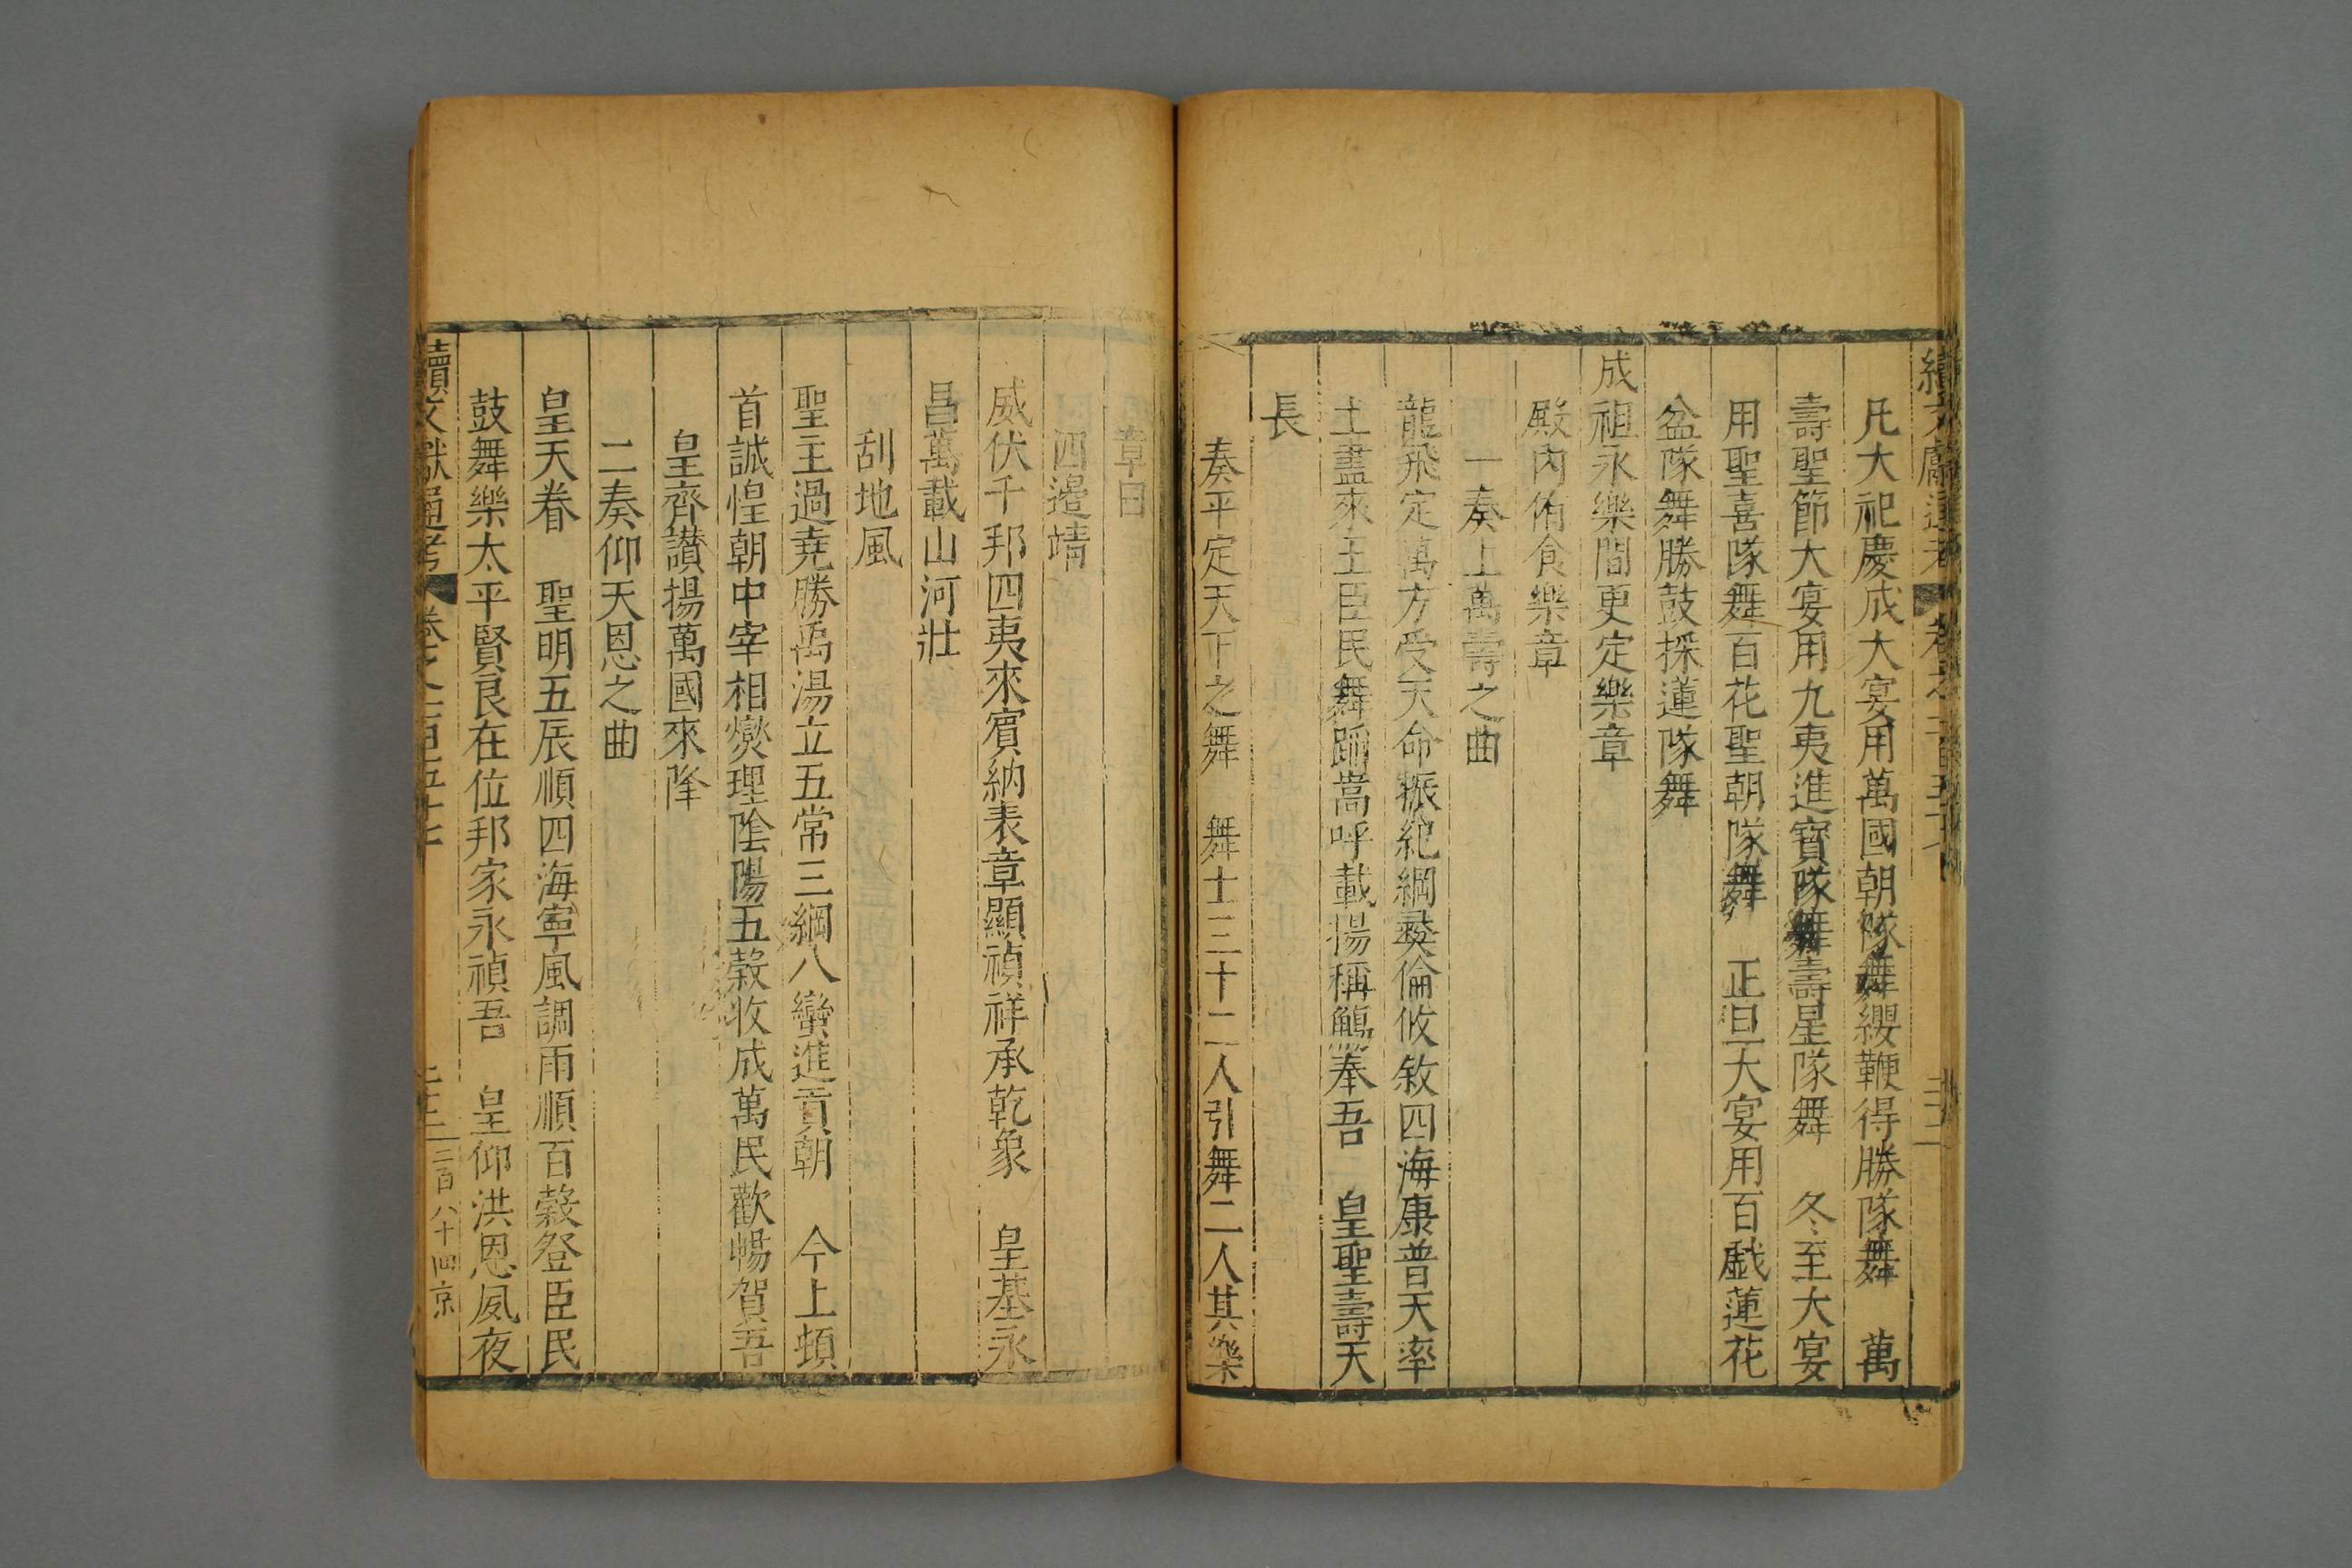 凡大祀慶成大宴用萬國朝隊舞纓鞭得勝隊舞　萬
壽聖節大宴用九夷進寶隊舞壽星隊舞　冬至大宴
用聖喜隊舞百花聖朝隊舞　正旦大宴用百戱蓮花
盆隊舞勝鼓採蓮隊舞
成祖永樂間更定樂章
殿內侑食樂章
一奏上萬壽之曲
龍飛定萬方受天命振紀綱彝倫攸敘四海康普天率
土盡來王臣民舞蹈嵩呼載揚稱觴奉吾　皇聖壽天
長
奏平定天下之舞　舞士三十二人引舞二人其樂
章曰
四邊靖
威伏千邦四夷來賓納表章顯禎祥承乾象　皇基永
昌萬載山河壯
刮地風
聖主過堯勝禹湯立五常三綱八蠻進貢朝　今上頓
首誠惶朝中宰相燮理陰陽五穀收成萬民歡暢賀吾
皇齊讃揚萬國來降
二奏仰天恩之曲
皇天眷　聖明五辰順四海寧風調雨順百穀登臣民
鼓舞樂太平賢良在位邦家永禎吾　皇仰洪恩夙夜
續文獻通考　卷之一百五十七
二百八十四京